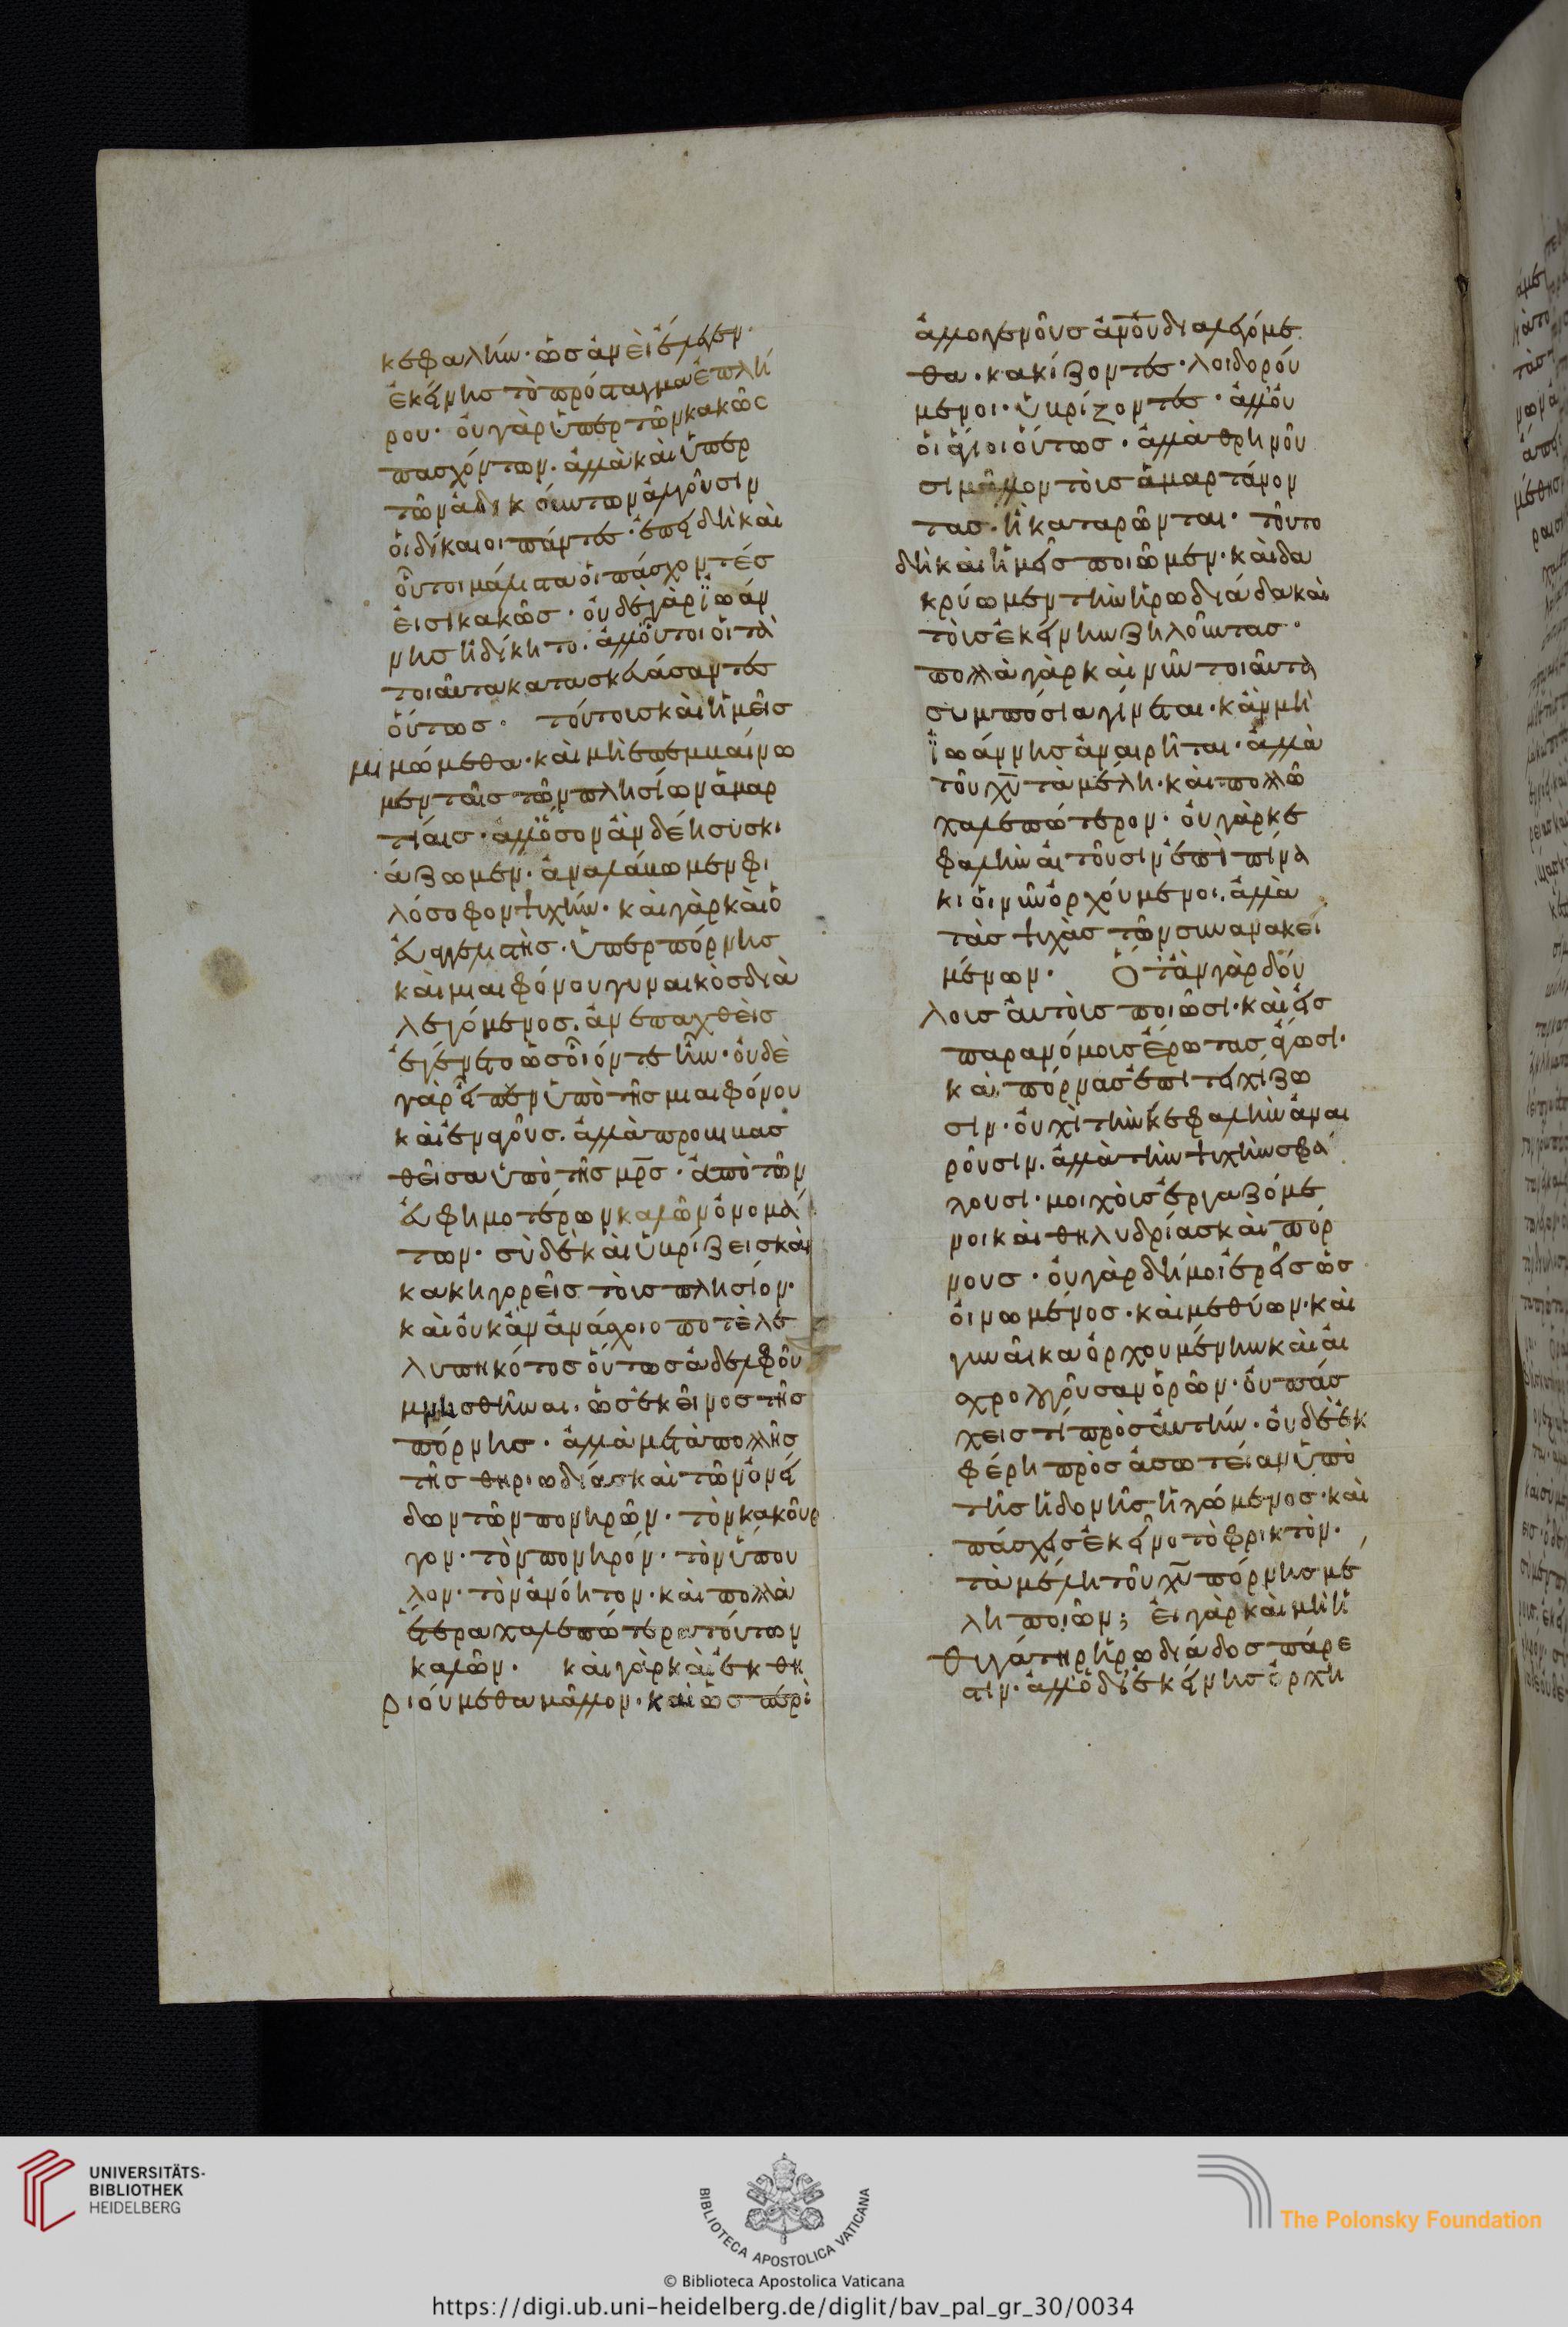 κεφαλήν· ὡς ἂν εἰ ἔλεγεν·
ἐκείνης τὸ πρόσταγμα ἐπλή
ρου· οὐ γὰρ ὑπὲρ τῶν κακῶς
πασχόντων. ἀλλὰ καὶ ὑπὲρ
τῶν ἀδικούντων ἀλγοῦσιν
οἱ δίκαιοι πάντες· ἐπειδὴ καὶ
οὗτοι μάλιστα οἱ πάσχοντές
εἰσι κακῶς· οὐδὲ γὰρ ἰωάν
νης ἠδίκητο. ἀλλ' οὗτοι οἱ τὰ
τοιαῦτα κατασκευάσαντες
οὕτως· τούτους καὶ ἡμεῖς
μιμώμεθα· καὶ μὴ ἐπεμβαίνω
μεν ταῖς τῶν πλησίων ἁμαρ
τίαις· ἀλλ' ὅσον ἂν δέῃ συσκι
άζωμεν· ἀναλάβωμεν φι
λόσοφον ψυχήν· καὶ γὰρ καὶ ὁ
εὐαγγελιστὴς· ὑπὲρ πόρνης
καὶ μιαιφόνου γυναικὸς δια
λεγόμενος. ἀνεπαχθὴς
ἐγένετο ὡς οἷόν τε ἦν· οὐδὲ
γὰρ εἶπεν ὑπὸ τῆς μιαιφόνου
καὶ ἐναγοῦς. ἀλλὰ προβιβασ
θεῖσα ὑπὸ τῆς μρς· ἀπὸ τῶν
εὐφημοτέρων καλῶν ὀνομά
των· σὺ δὲ καὶ ὑβρίζεις καὶ
κακηγορεῖς τοῖς πλησίον·
καὶ οὐκ ἂν ἀνάσχοιο ποτὲ λε
λυπηκότος οὕτως ἀδελφοῦ
μνησθῆναι. ὡς ἐκεῖνος τῆς
πόρνης· ἀλλὰ μετὰ πολλῆς
τῆς θηριωδίας καὶ τῶν ὀνει
δῶν τῶν πονηρῶν· τὸν κακοῦρ
γον· τὸν πονηρόν· τὸν ὕπου
λον· τὸν ἀνόητον· καὶ πολλὰ
ἕτερα χαλεπώτερα τούτων
καλῶν· καὶ γὰρ καὶ ἐκθη
ριούμεθα μᾶλλον· καὶ ὡς περὶ
ἀλλογενοῦς ἀνου διαλεγόμε
θα· κακίζοντες· λοιδορού
μενοι· ὑβρίζοντες· ἀλλ' οὐ
οἱ ἅγιοι οὕτως· ἀλλὰ θρηνοῦ
σι μᾶλλον τοῖς ἁμαρτάνον
τας· ἢ καταρῶνται· τοῦτο
δὴ καὶ ἡμεῖς ποιῶμεν· καὶ δα
κρύωμεν τὴν ἡρωδιάδα καὶ
τοῖς ἐκείνην ζηλοῦντας·
πολλὰ γὰρ καὶ νῦν τοιαῦτα
συμπόσια γίνεται· κἂν μὴ
ἰωάννης ἀναιρῆται· ἀλλὰ
τοῦ χυ τὰ μέλη· καὶ πολλῶ
χαλεπώτερον· οὐ γὰρ κε
φαλὴν αἰτοῦσιν ἐπὶ πίνα
κι οἱ νῦν ὀρχούμενοι. ἀλλὰ
τὰς ψυχὰς τῶν συνανακει
μένων· Ὅταν γὰρ δού
λους αὐτοὺς ποιῶσι· καὶ εἰς
παρανόμους ἔρωτας ἄγωσι·
καὶ πόρνας ἐπιτειχίζω
σιν· οὐχὶ τὴν κεφαλὴν ἀναι
ροῦσιν. ἀλλὰ τὴν ψυχὴν σφά
γουσι· μοιχοὺς ἐργαζόμε
νοι καὶ θηλυδρίας καὶ πόρ
νους· οὐ γὰρ δή μοι ἐρεῖς ὡς
οἰνωμένος· καὶ μεθύων· καὶ
γυναῖκα ὀρχουμένην καὶ αἰ
σχρολογοῦσαν ὁρῶν· οὐ πάσ
χεις τί πρὸς αὐτήν· οὐδὲ ἐκ
φέρη πρὸς ἀσωτείαν ὑπὸ
τῆς ἡδονῆς ἡττώμενος· καὶ
πάσχεις ἐκεῖνο τὸ φρικτὸν·
τὰ μέλη τοῦ χυ πόρνης μέ
λη ποιῶν; εἰ γὰρ καὶ μὴ ἡ
θυγάτηρ ἡρωδιάδος πάρε
στιν· ἀλλ' ὁ δι' ἐκείνης ὀρχη
UNIVERSITÄTS-
BIBLIOTHEK
HEIDELBERG
BIBLIOTECA APOSTOLICA VATICANA
The Polonsky Foundation
© Biblioteca Apostolica Vaticana
https://digi.ub.uni-heidelberg.de/diglit/bav_pal_gr_30/0034